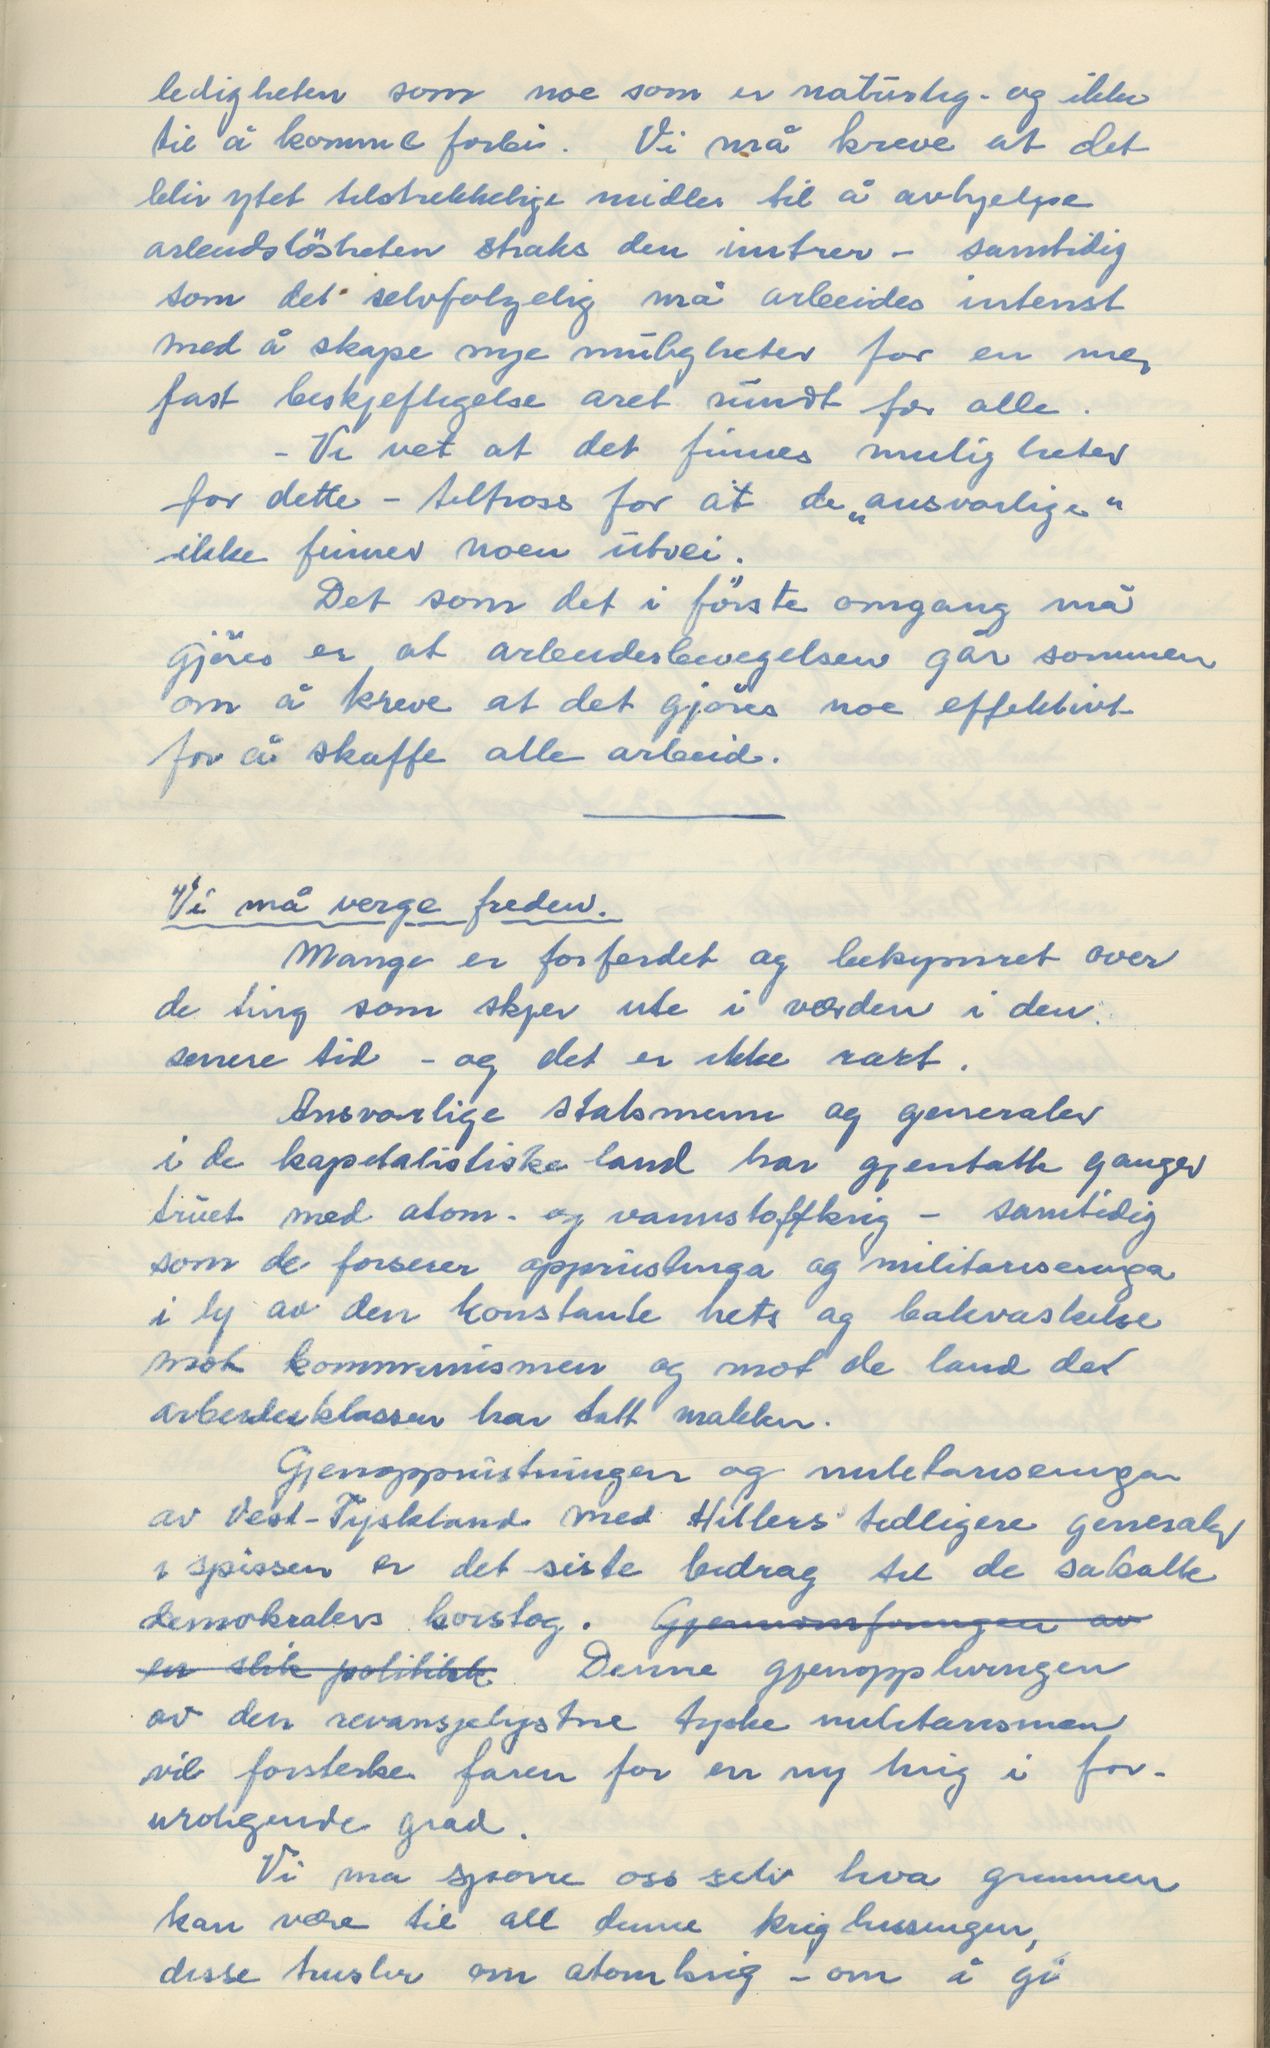 ledigheten som noe som er naturlig - og ikke
til å komme forbi. Vi må kreve at det
blir ytet tilstrekkelige midler til å avhjelpe
arbeidslösheten straks den inntrer - samtidig
som det selvfølgelig må arbeides intenst
med å skape nye muligheter for en mer
fast beskjeftigelse året rundt for alle.
- Vi vet at det finnes muligheter
for dette - tiltross for at de „ansvarlige"
ikke finner noen utvei.
Det som det i förste omgang må
gjöres er at arbeiderbevegelsen går sammen
om å kreve at det gjöres noe effektivt
for å skaffe alle arbeid.
Vi må verge freden.
Mange er forferdet og bekymret over
de ting som skjer ute i verden i den
senere tid - og det er ikke rart.
Ansvarlige statsmenn og generaler
i de kapitalistiske land har gjentatte ganger
truet med atom- og vannstoffkrig - samtidig
som de forserer opprustninga og militariseringa
i ly av den konstante hets og bakvaskelse
mot kommunismen og mot de land der
arbeiderklassen har tatt makten.
Gjenopprustningen og militariseringen
av Vest-Tyskland med Hitlers tidligere generaler
i spissen er det siste bidrag til de såkalte
demokraters korstog. Gjennomføringen av
en slik politikk Denne gjenopplivingen
av den revansjelystne tyske militarismen
vil forsterke faren for en ny krig i for-
urolgende grad.
Vi må spørre oss selv hva grunnen
kan være til all denne krighissingen,
disse trusler om atomkrig - om å gi